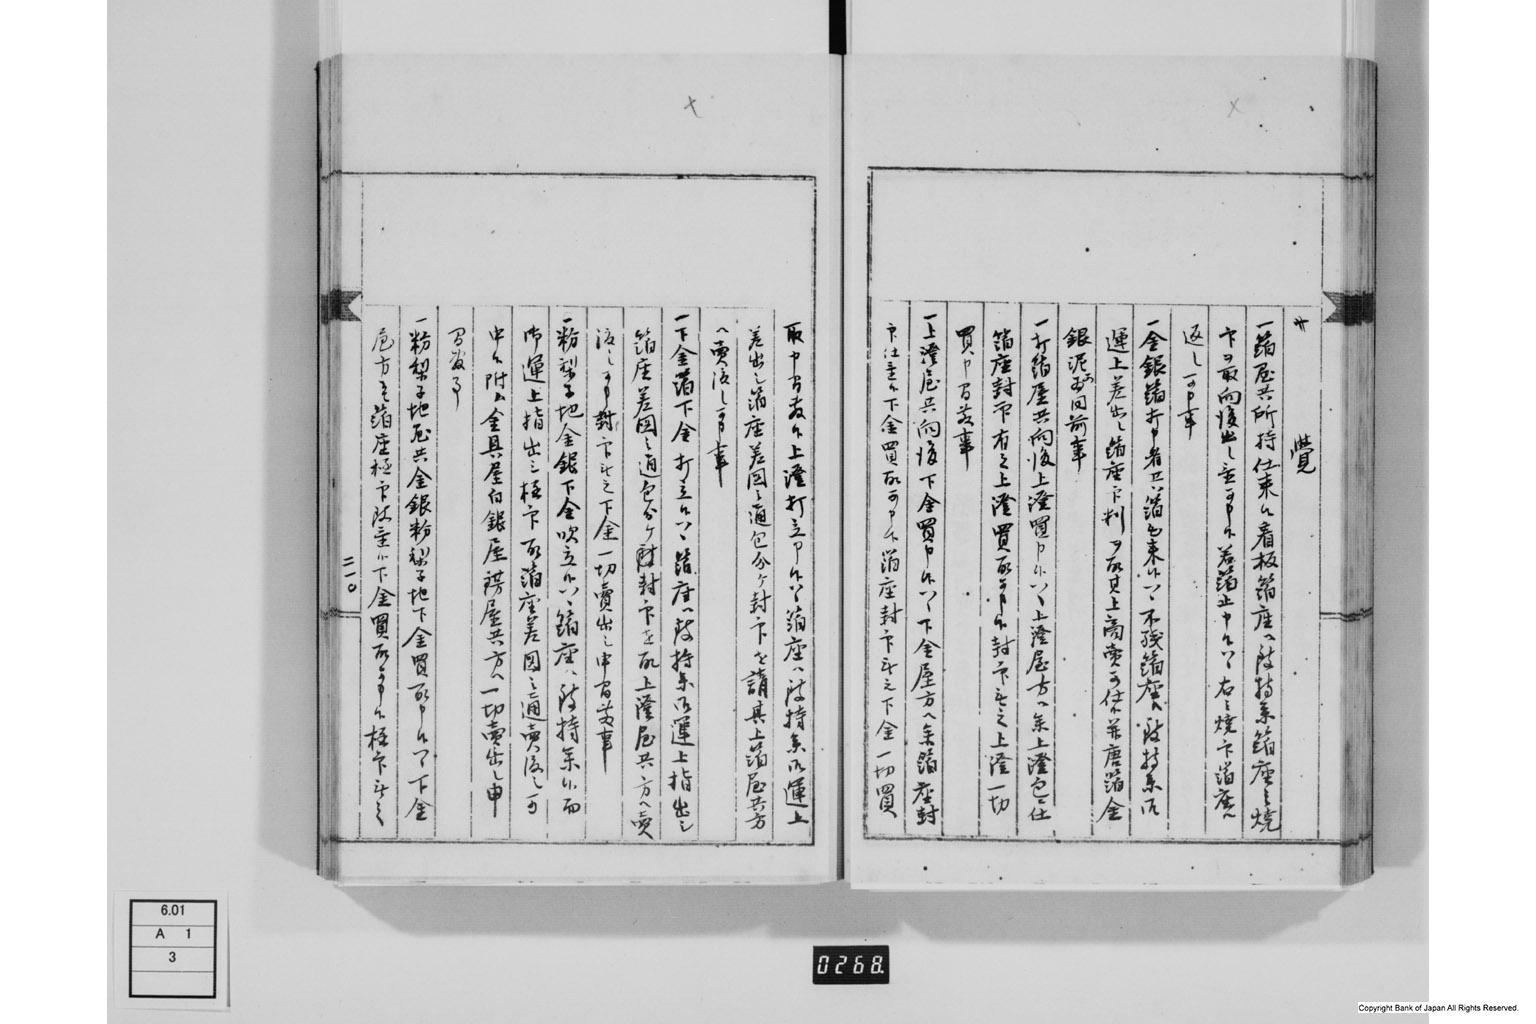 覚
一箔屋共所持仕来候看板箔座へ致持参箔座之焼
印を取向後出し置可申候若箔止申候ハヽ右之焼印箔座へ
返し可申事
一金銀箔打申者共箔出来候ハヽ不残箔座へ致持参御
運上差出し箔座印判を取其上商売可仕候并唐箔金
銀泥も同前事
一打箔屋共向後上澄買申候ハヽ上澄屋方へ参上澄包ニ仕
箔座封印有之上澄買取可申候封印無之上澄一切
買申間敷事
一上澄屋共向後下金買申候ハヽ下金屋方へ参箔座封
印仕置候下金買取可申候箔座封印無之下金一切買
取申間敷候上澄打立申候ハヽ箔座へ致持参御運上
差出し箔座差図之通包分ケ封印を請其上箔屋共方
へ売渡し可申事
一下金箔下金打立候ハヽ箔座へ致持参御運上指出シ
箔座差図之通包分ケ致封印を取上澄屋共方へ売
渡し可申封印無之下金一切売出し申間敷事
一粉梨子地金銀下金吹立候ハヽ箔座へ致持参候而
御運上指出シ極印取箔座差図之通売渡し可
申候附金具屋白銀屋鋳屋共方へ一切売出し申
間敷事
一粉梨子地屋共金銀粉梨子地下金買取申候ハヽ下金
屋方ニ而箔座極印致置候下金買取可申候極印無之
二一〇
6.01
A 1
3
0268
Copyright Bank of Japan All Rights Reserved.